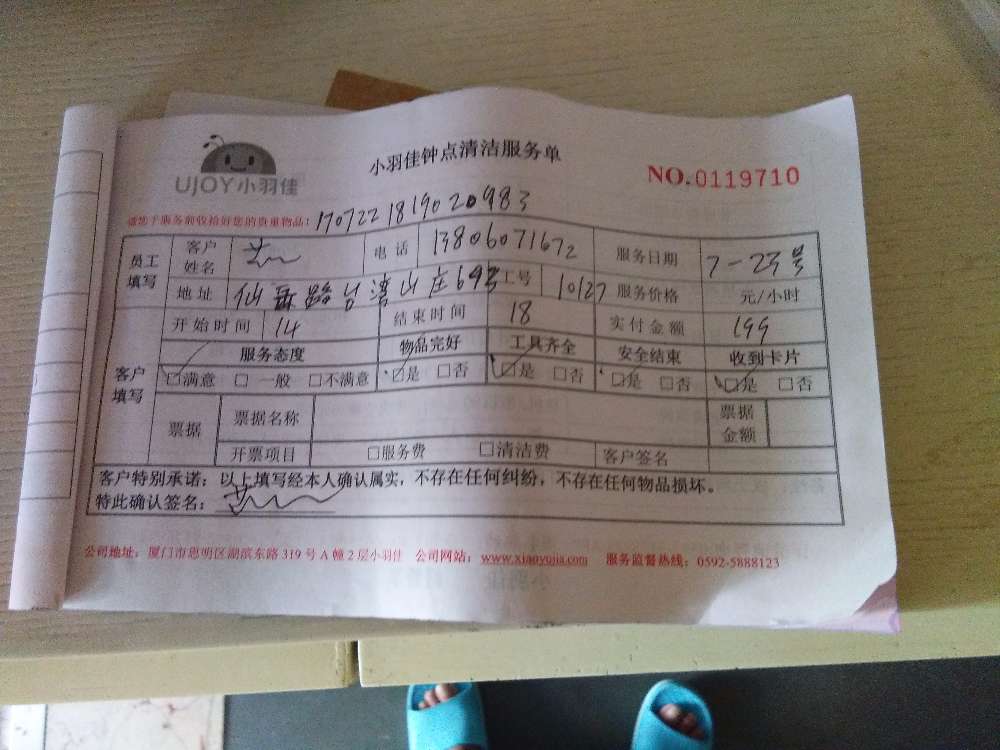 UJOY小羽佳
小羽佳钟点清洁服务单
NO.0119710
请您于服务前收拾好您的贵重物品: 1707221819020983
员工填写 客户姓名 电话 13806071672 服务日期 7-23号
地址 仙岳路台湾山庄69 工号 10127 服务价格 元/小时
开始时间 14 结束时间 18 实付金额 199
客户填写 服务态度 物品完好 工具齐全 安全结束 收到卡片
☐满意 ☐一般 ☐不满意 ☐是 ☐否 ☐是 ☐否 ☐是 ☐否 ☐是 ☐否
票据 票据名称 票据金额
开票项目 ☐服务费 ☐清洁费 客户签名
客户特别承诺：以上填写经本人确认属实，不存在任何纠纷，不存在任何物品损坏。
特此确认签名：
公司地址：厦门市思明区湖滨东路319号A幢2层小羽佳 公司网站：www.xiaoyujia.com 服务监督热线：0592-5888123